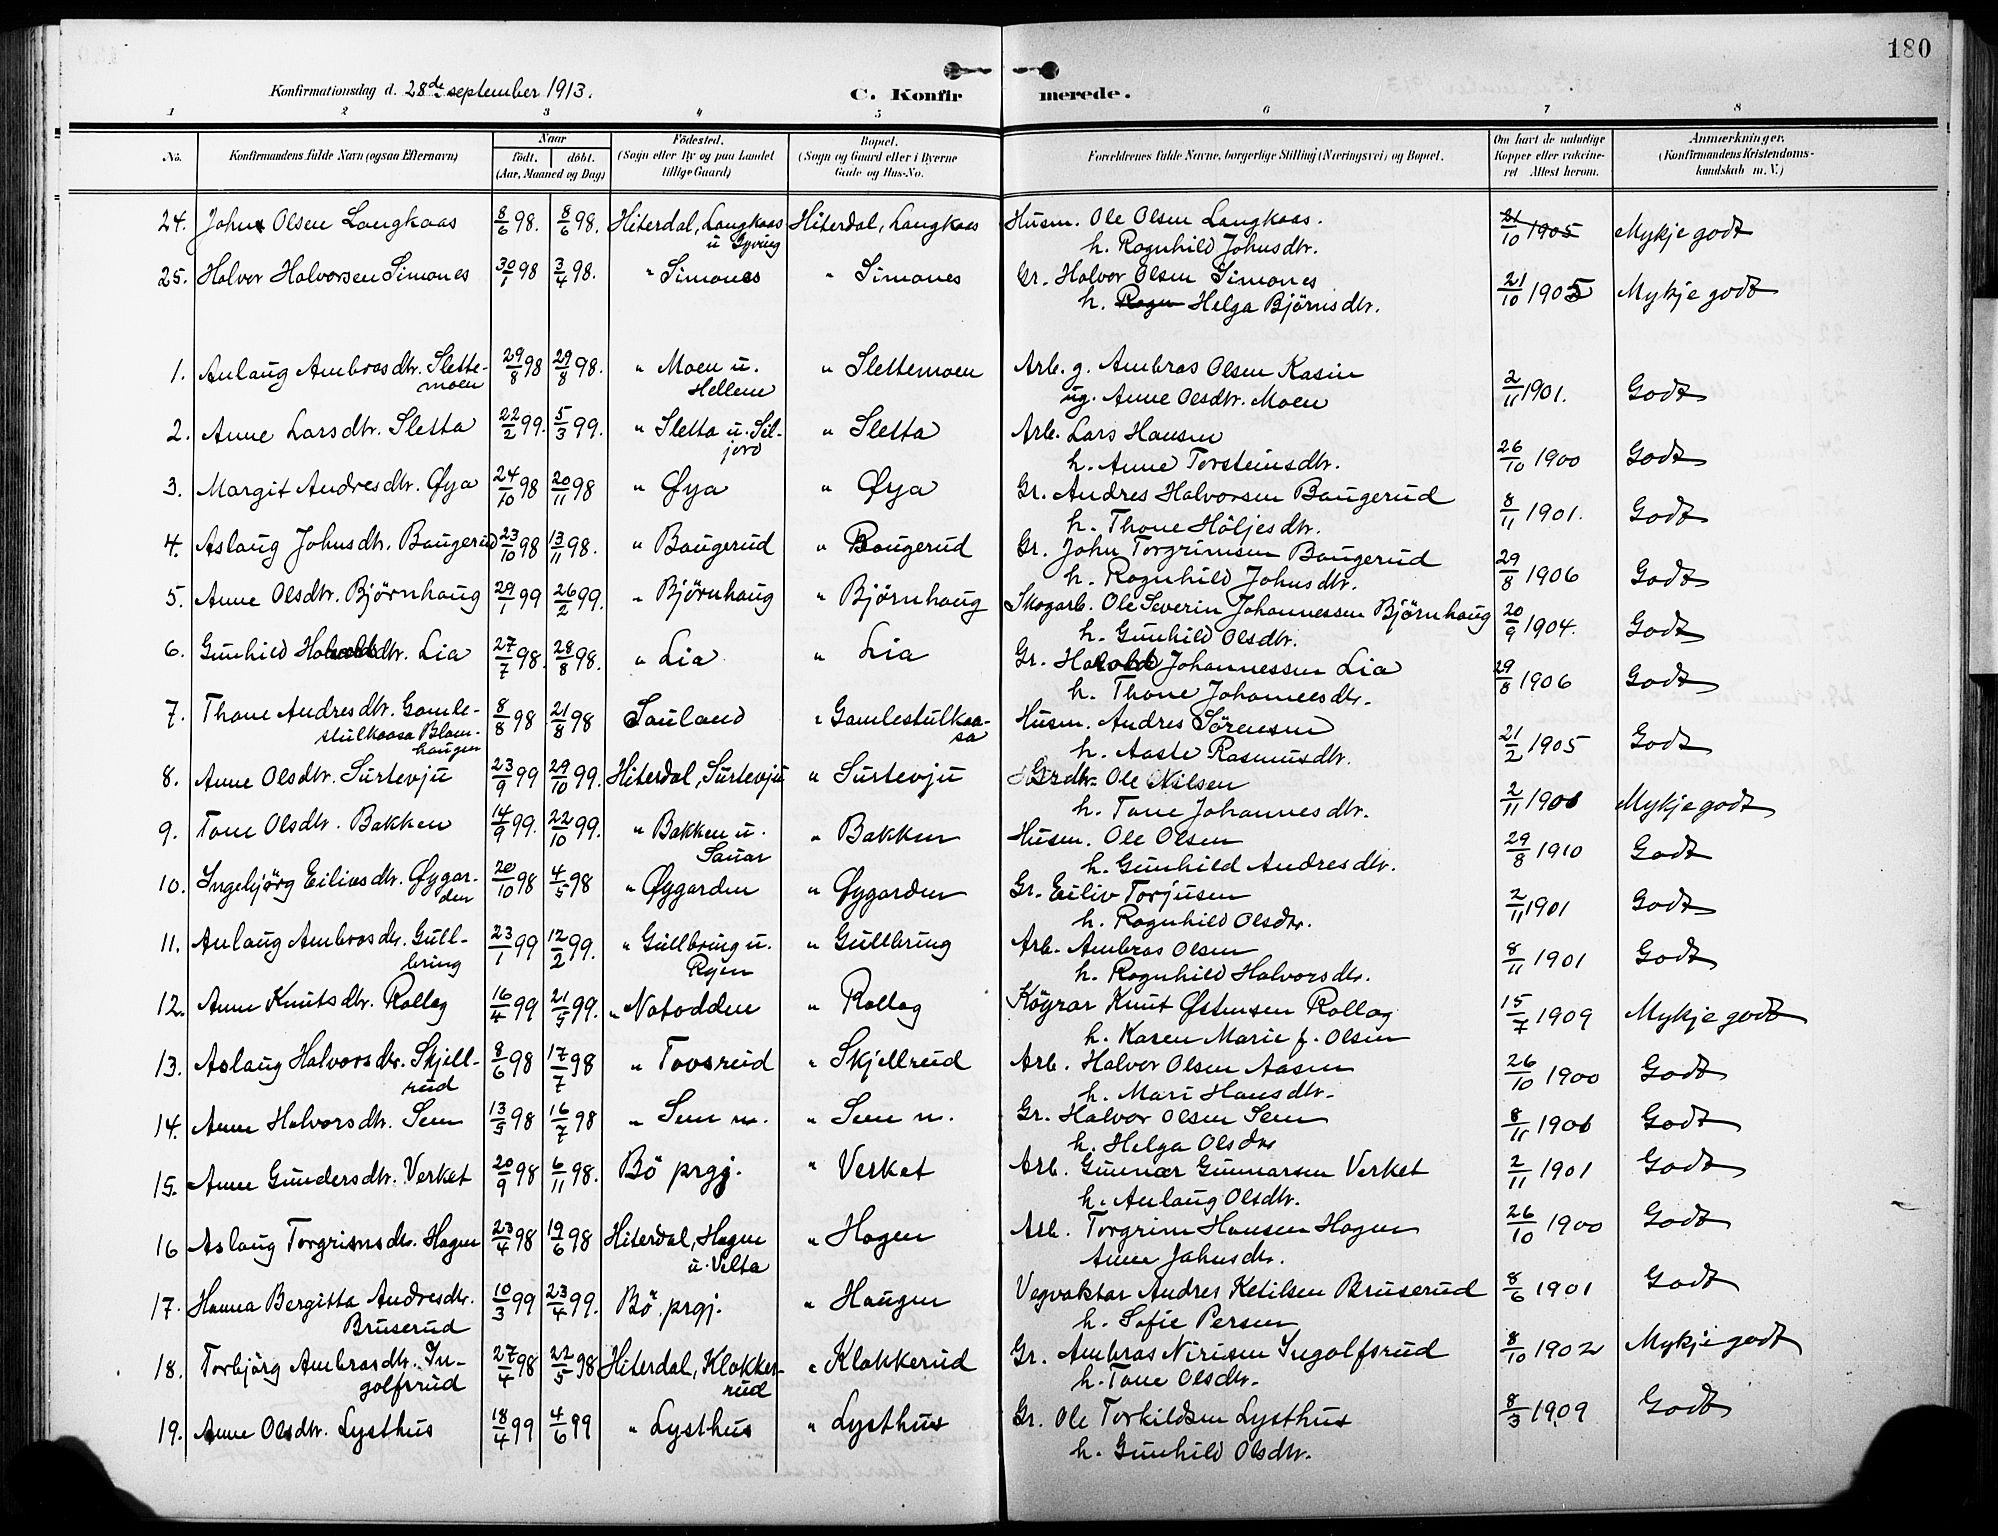 180
Konfirmationsdag d. 28de september 1913. C. Konfirmerede.
1 2 3 4 5 6 7 8
No. Konfirmandens fulde Navn (ogsaa Efternavn) Naar født. døbt. (Aar, Maaned og Dag) Fødested. (Sogn eller By og paa Landet tillige Gaard) Bopæl. (Sogn og Gaard eller i Byerne Gade og Hus-No. Forældrenes fulde Navne, borgerlige Stilling (Næringsvei) og Bopæl. Om havt de naturlige Kopper eller vakcineret Attest herom. Anmærkninger. (Konfirmandens Kristendomskundskab m. V.)
24. John Olsen Langkaas 8/6 98. 8/6 98. Hiterdal, Langkaas Hiterdal, Langkaas Husm. Ole Olsen Langkaas. 21/10 1905 Mykje godt
u Gyving h. Ragnhild Johnsdtr.
25. Halvor Halvorsen Simones 30/1 98 3/4 98. " Simones " Simones Gr. Halvor Olsen Simones 21/10 1905 Mykje godt
h. Ragn Helga Bjørnsdtr.
1. Anlaug Ambrosdtr. Slette- 29/8 98 29/8 98. " Moen u. " Slettemoen Arb. g. Ambros Olsen Kasin 2/11 1901. Godt
moen Hellem ug. Anne Olsdtr. Moen
2. Anne Larsdtr. Sletta 22/2 99. 5/3 99. " Sletta u. Sil- " Sletta Arb. Lars Hansen 26/10 1900 Godt
jord h. Anne Torsteinsdtr.
3. Margit Andresdtr. Øya 24/10 98 20/11 98 " Øya " Øya Gr. Andres Halvorsen Baugerud 8/11 1901. Godt
h. Thone Höljesdtr.
4. Aslaug Johnsdtr. Baugerud 23/10 98 13/11 98. " Baugerud " Baugerud Gr. John Torgrimsen Baugerud 29/8 1906 Godt
h. Ragnhild Johnsdtr.
5. Anne Olsdtr. Bjørnhaug 29/1 99 26/2 99. " Bjørnhaug " Bjørnhaug Skogarb. Ole Severin Johannessen Bjørnhaug 20/9 1904. Godt
h. Gunhild Olsdtr.
6. Gunhild dtr. Lia 27/7 98. 28/8 98. " Lia " Lia Gr. Johannessen Lia 29/8 1906 Godt
h. Thone Johannesdtr.
7. Thone Andresdtr. Gamle- 8/8 98 21/8 98 Sauland " Gamlestulkaa- Husm. Andres Sörensen 21/2 1905 Godt
stulkaasa Blom- sa h. Aaste Rasmusdtr.
haugen
8. Anne Olsdtr. Surtevju 23/9 99 29/10 99. Hiterdal, Surtevju " Surtevju Ole Nilsen 2/11 1901 Mykje godt
h. Tone Johannesdtr.
9. Tone Olsdtr. Bakken 14/9 99. 22/10 99. " Bakken u. " Bakken Husm. Ole Olsen 29/8 1910 Godt
Sauar h. Gunhild Andresdtr.
10. Ingebjörg Eilivsdtr. Øygar- 20/10 98 4/5 98 " Øygarden " Øygarden Gr. Eiliv Torjusen 2/11 1901 Godt
den h. Ragnhild Olsdtr.
11. Anlaug Ambrosdtr. Gull- 23/1 99 12/2 99. " Gullbring u. " Gullbring Arb. Ambros Olsen 8/11 1901 Godt
bring Ryen h. Ragnhild Halvorsdtr.
12. Anne Knutsdtr. Rollag 16/4 99 21/5 99. " Notodden " Rollag Köyrar Knut Østensen Rollag 15/7 1909 Mykje godt
h. Karen Marie f. Olsen
13. Aslaug Halvorsdtr. Skjell- 8/6 98 17/7 98 " Tovsrud " Skjellrud Arb. Halvor Olsen Aasen 26/10 1900 Godt
rud h. Mari Hansdtr.
14. Anne Halvorsdtr. Sem 13/5 98 16/7 98 " Sem n. " Sem n. Gr. Halvor Olsen Sem 8/11 1901 Godt
h. Helga Olsdtr
15. Anne Gundersdtr. Verket 20/9 98 6/11 98. Bö prgj. " Verket Arb. Gunnar Gunnarsen Verket 2/11 1901 Godt
h. Anlaug Olsdtr.
16 Aslaug Torgrimsdtr. Hagen 23/4 98 19/6 98 Hiterdal, Hagen " Hagen Arb. Torgrim Hansen Hagen 26/10 1900 Godt
u. Velta Anne Jahnsdtr.
17. Hanna Bergitta Andresdtr. 10/3 99 23/4 99. Bö. prgj. " Haugen Vegvaktar Andres Ketilsen Bruserud 8/6 1901 Godt
Bruserud h. Sofie Persen
18. Torbjörg Ambrosdtr. In- 27/4 98 22/5 98 Hiterdal, Klokker- " Klokkerud Gr. Ambros Nirisen Ingolfsrud 8/10 1902 Mykje godt
golfsrud rud h. Tone Olsdtr.
19. Anne Olsdtr. Lysthus 18/4 99 4/6 99 " Lysthus " Lysthus Gr. Ole Torkildsen Lysthus 8/3 1909 Godt
h. Gunhild Olsdtr.